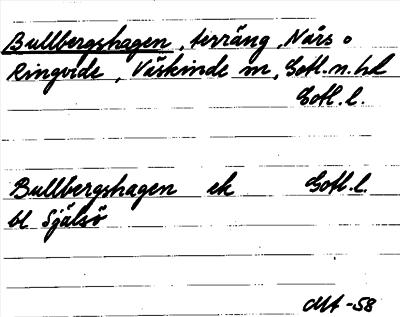 Bullbergshagen, terräng, Nors o
Ringvide, Väskinde sn, Gotl. n. hd
Gotl. l.
Bullbergshagen ek Gotl. l.
bl Själsö
MA -58